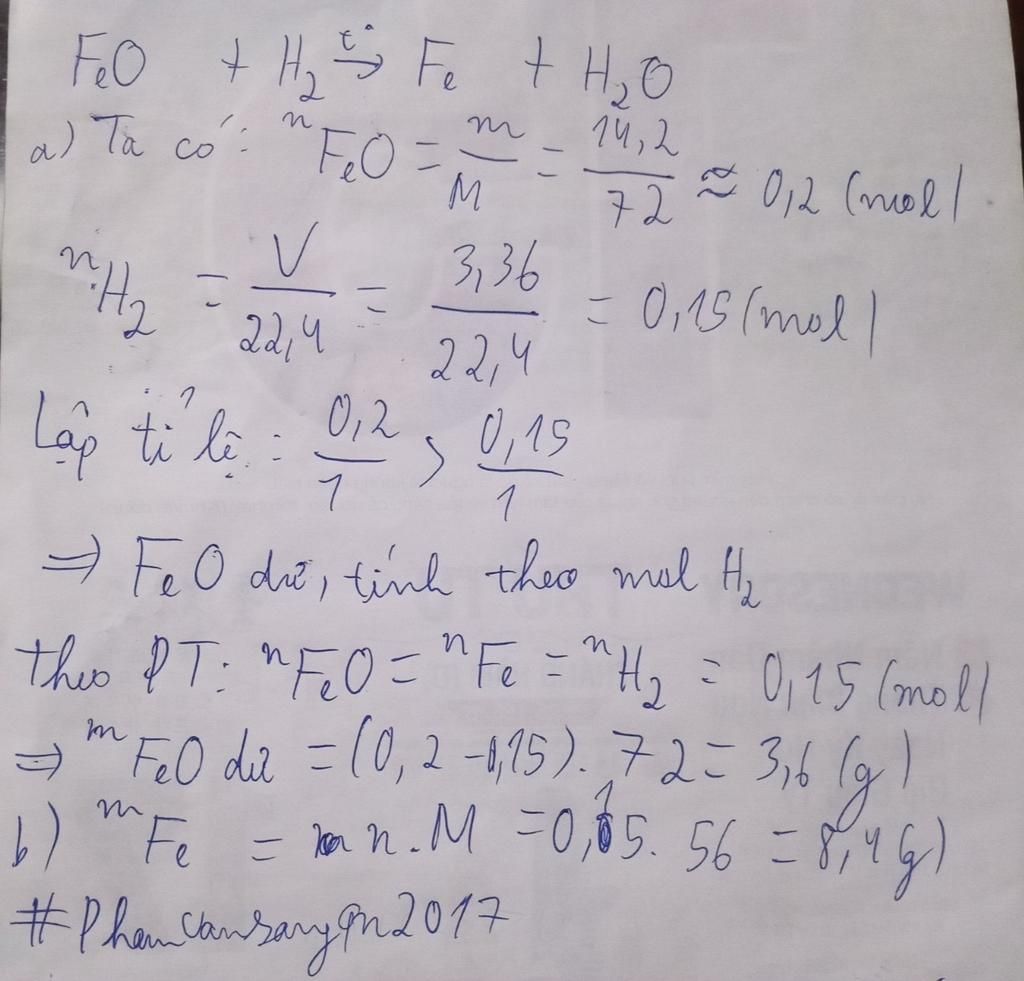 FeO + H₂ →(t°) Fe + H₂O
a) Ta có: nFeO = m/M = 14,2/72 ≈ 0,2 (mol)
nH₂ = V/22,4 = 3,36/22,4 = 0,15 (mol)
Lập tỉ lệ: 0,2/1 > 0,15/1
⇒ FeO dư, tính theo mol H₂
theo PT: nFeO = nFe = nH₂ = 0,15 (mol)
⇒ mFeO dư = (0,2 - 0,15). 72 = 3,6 (g)
b) mFe = n.M = 0,15. 56 = 8,4 g)